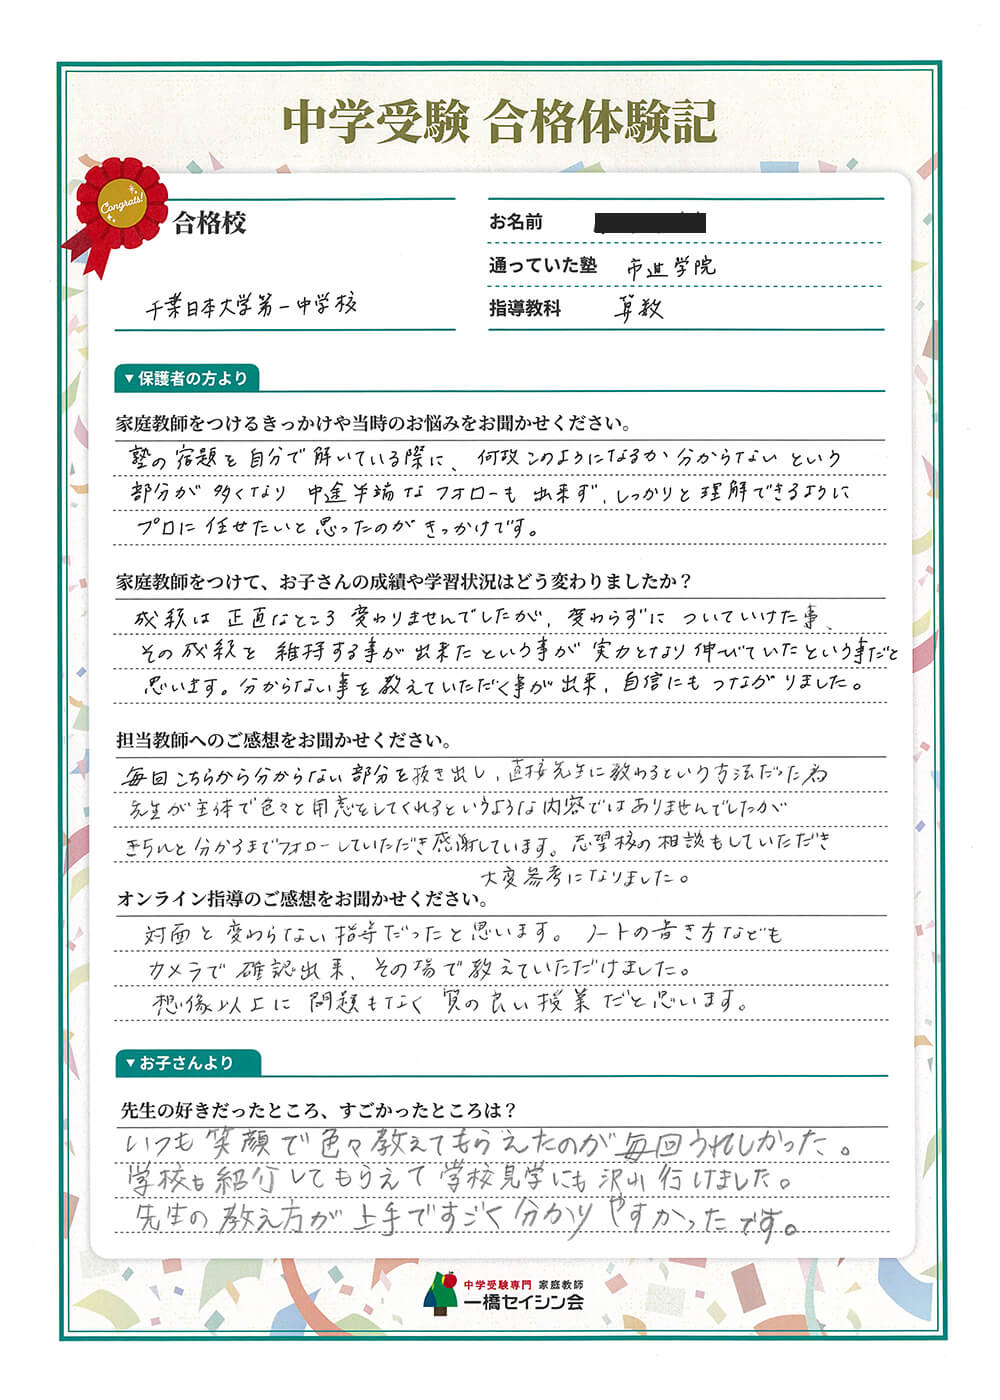 中学受験 合格体験記
Congrats!
合格校
千葉日本大学第一中学校
お名前
通っていた塾 市進学院
指導教科 算数
▼保護者の方より
家庭教師をつけるきっかけや当時のお悩みをお聞かせください。
塾の宿題を自分で解いている際に、何故このようになるか分からないという
部分が多くなり 中途半端なフォローも出来ず、しっかりと理解できるように
プロに任せたいと思ったのがきっかけです。
家庭教師をつけて、お子さんの成績や学習状況はどう変わりましたか？
成績は正直なところ変わりませんでしたが、変わらずについていけた事、
その成績を維持する事が出来たという事が実力となり伸びていたという事だと
思います。分からない事を教えていただく事が出来、自信にもつながりました。
担当教師へのご感想をお聞かせください。
毎回こちらから分からない部分を抜き出し、直接先生に教わるという方法だった為
先生が主体で色々と用意をしてくれるというような内容ではありませんでしたが
きちんと分かるまでフォローしていただき感謝しています。志望校の相談もしていただき
大変参考になりました。
オンライン指導のご感想をお聞かせください。
対面と変わらない指導だったと思います。ノートの書き方なども
カメラで確認出来、その場で教えていただけました。
想像以上に問題もなく質の良い授業だと思います。
▼お子さんより
先生の好きだったところ、すごかったところは？
いつも笑顔で色々教えてもらえたのが毎回うれしかった。
学校も紹介してもらえて学校見学にも沢山行けました。
先生の教え方が上手ですごく分かりやすかったです。
中学受験専門 家庭教師
一橋セイシン会